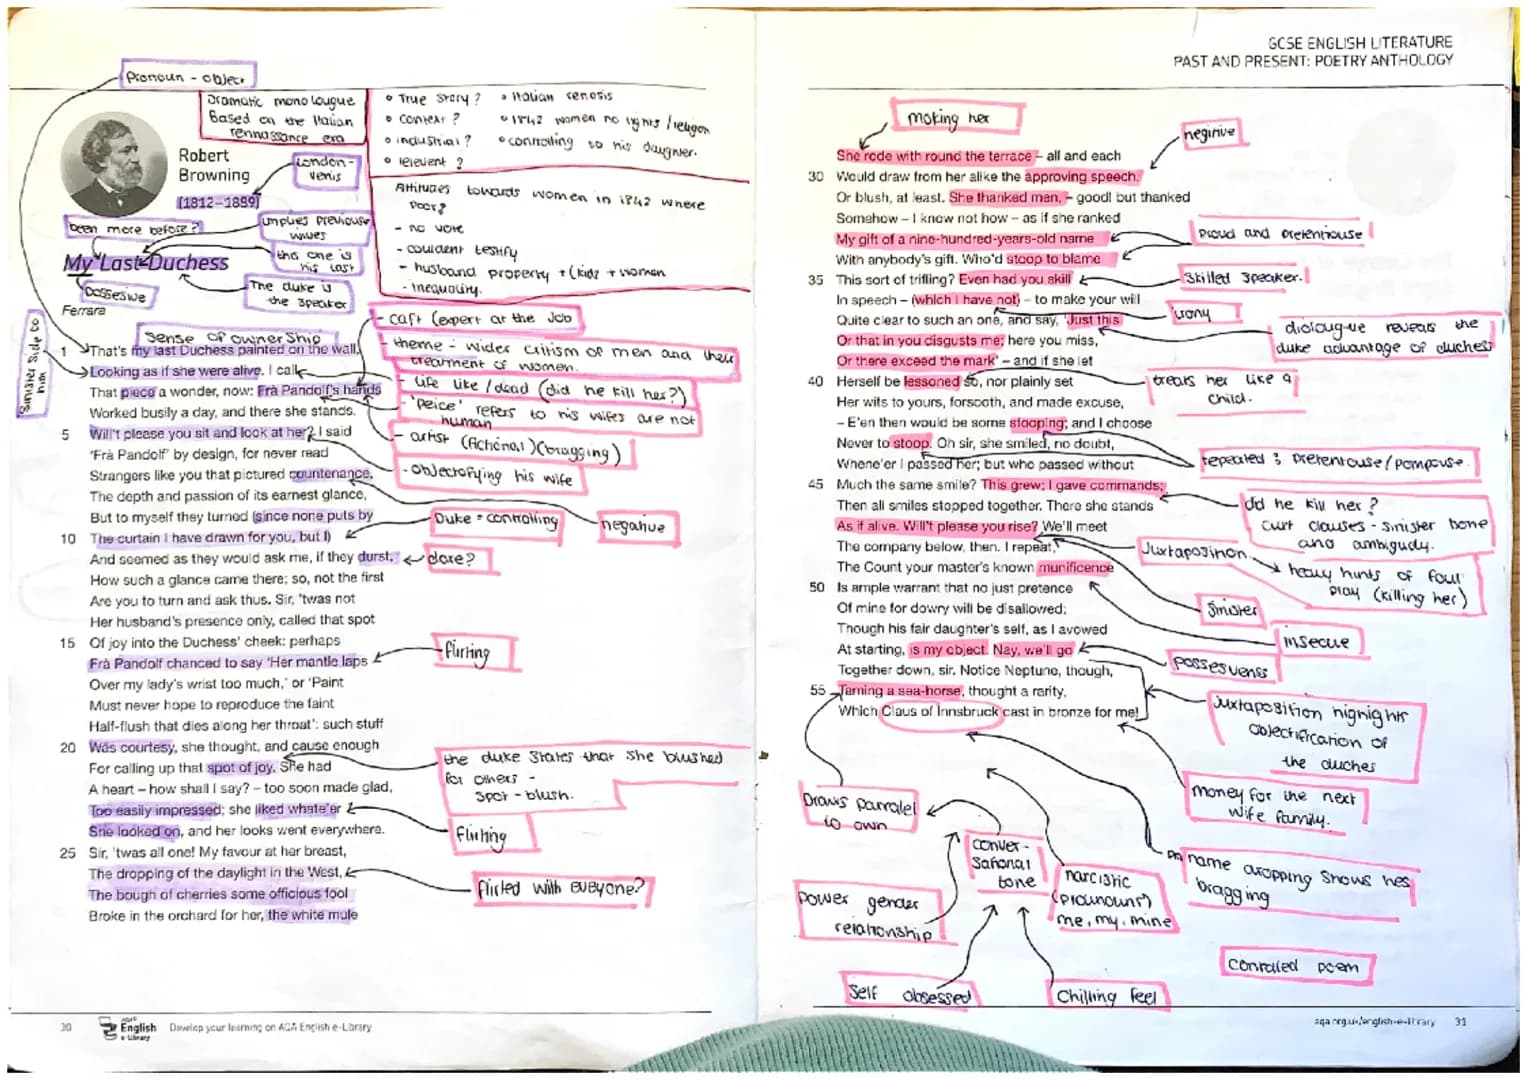 Pronoun - object
Dramatic monolougue
Based on the Italian
rennassance era
• True Story?
• context?
• industrial?
• relevent?
• Italian renosis
• 1842 women no rights/religon
• controlling to his daughter.
Robert
Browning
(1812–1889)
London-
venis
Attituaes towards women in 1842 where
poor?
- no vote
- couldent testify
- husband property + (kids + women
- inequality.
been more before?
implies previouse
wives
this one is
his last
My Last Duchess
possesive
The duke is
the speaker
Ferrara
Sinister side to
him
Sense of ownership
- caft (expert at the Job
- theme - wider critism of men and their
treatment of women.
- life like / dead (did he kill her?)
- 'peice' refers to his wifes are not
human
- artist (fictional) (bragging)
- objectofying his wife
1 That's my last Duchess painted on the wall,
Looking as if she were alive. I call
That piece a wonder, now: Frà Pandolf's hands
Worked busily a day, and there she stands.
5 Will't please you sit and look at her? I said
'Frà Pandolf' by design, for never read
Strangers like you that pictured countenance,
The depth and passion of its earnest glance,
But to myself they turned (since none puts by
10 The curtain I have drawn for you, but I)
And seemed as they would ask me, if they durst,
How such a glance came there; so, not the first
Are you to turn and ask thus. Sir, 'twas not
Her husband's presence only, called that spot
15 Of joy into the Duchess' cheek: perhaps
Frà Pandolf chanced to say 'Her mantle laps
Over my lady's wrist too much,' or 'Paint
Must never hope to reproduce the faint
Half-flush that dies along her throat': such stuff
20 Was courtesy, she thought, and cause enough
For calling up that spot of joy. She had
A heart – how shall I say? – too soon made glad,
Too easily impressed; she liked whate'er
She looked on, and her looks went everywhere.
25 Sir, 'twas all one! My favour at her breast,
The dropping of the daylight in the West,
The bough of cherries some officious fool
Broke in the orchard for her, the white mule
Duke = controlling
negative
dare?
flirting
the duke states that she blushed
for others -
spot - blush.
Flirting
flirted with everyone?
30
AQA
English
e-Library
Develop your learning on AQA English e-Library
GCSE ENGLISH LITERATURE
PAST AND PRESENT: POETRY ANTHOLOGY
making her
negitive
She rode with round the terrace – all and each
30 Would draw from her alike the approving speech,
Or blush, at least. She thanked men, – good! but thanked
Somehow – I know not how – as if she ranked
My gift of a nine-hundred-years-old name
With anybody's gift. Who'd stoop to blame
35 This sort of trifling? Even had you skill
In speech – (which I have not) – to make your will
Quite clear to such an one, and say, 'Just this
Or that in you disgusts me; here you miss,
Or there exceed the mark' – and if she let
40 Herself be lessoned so, nor plainly set
Her wits to yours, forsooth, and made excuse,
– E'en then would be some stooping; and I choose
Never to stoop. Oh sir, she smiled, no doubt,
Whene'er I passed her; but who passed without
45 Much the same smile? This grew; I gave commands;
Then all smiles stopped together. There she stands
As if alive. Will't please you rise? We'll meet
The company below, then. I repeat,
The Count your master's known munificence
50 Is ample warrant that no just pretence
Of mine for dowry will be disallowed;
Though his fair daughter's self, as I avowed
At starting, is my object. Nay, we'll go
Together down, sir. Notice Neptune, though,
55 Taming a sea-horse, thought a rarity,
Which Claus of Innsbruck cast in bronze for me!
proud and pretenhouse
Skilled speaker.
irony
diolougue reveals the
duke advantage of duchess
treats her like a
child.
repeated ; pretentouse/pompouse.
did he kill her?
curt clauses - sinister tone
and ambigudy.
Juxtaposition
heavy hints of foul
play (killing her)
sinister
insecue
possesveness
Juxtaposition highlights
objectification of
the duches
money for the next
wife family.
name dropping shows hes
bragging
Draws parralel
to own
conver-
sational
tone
narcistic
(pronouns)
me, my, mine
power gender
relationship
Self obsessed
Chilling feel
Controlled poem
aqa.org.uk/english-e-library 31